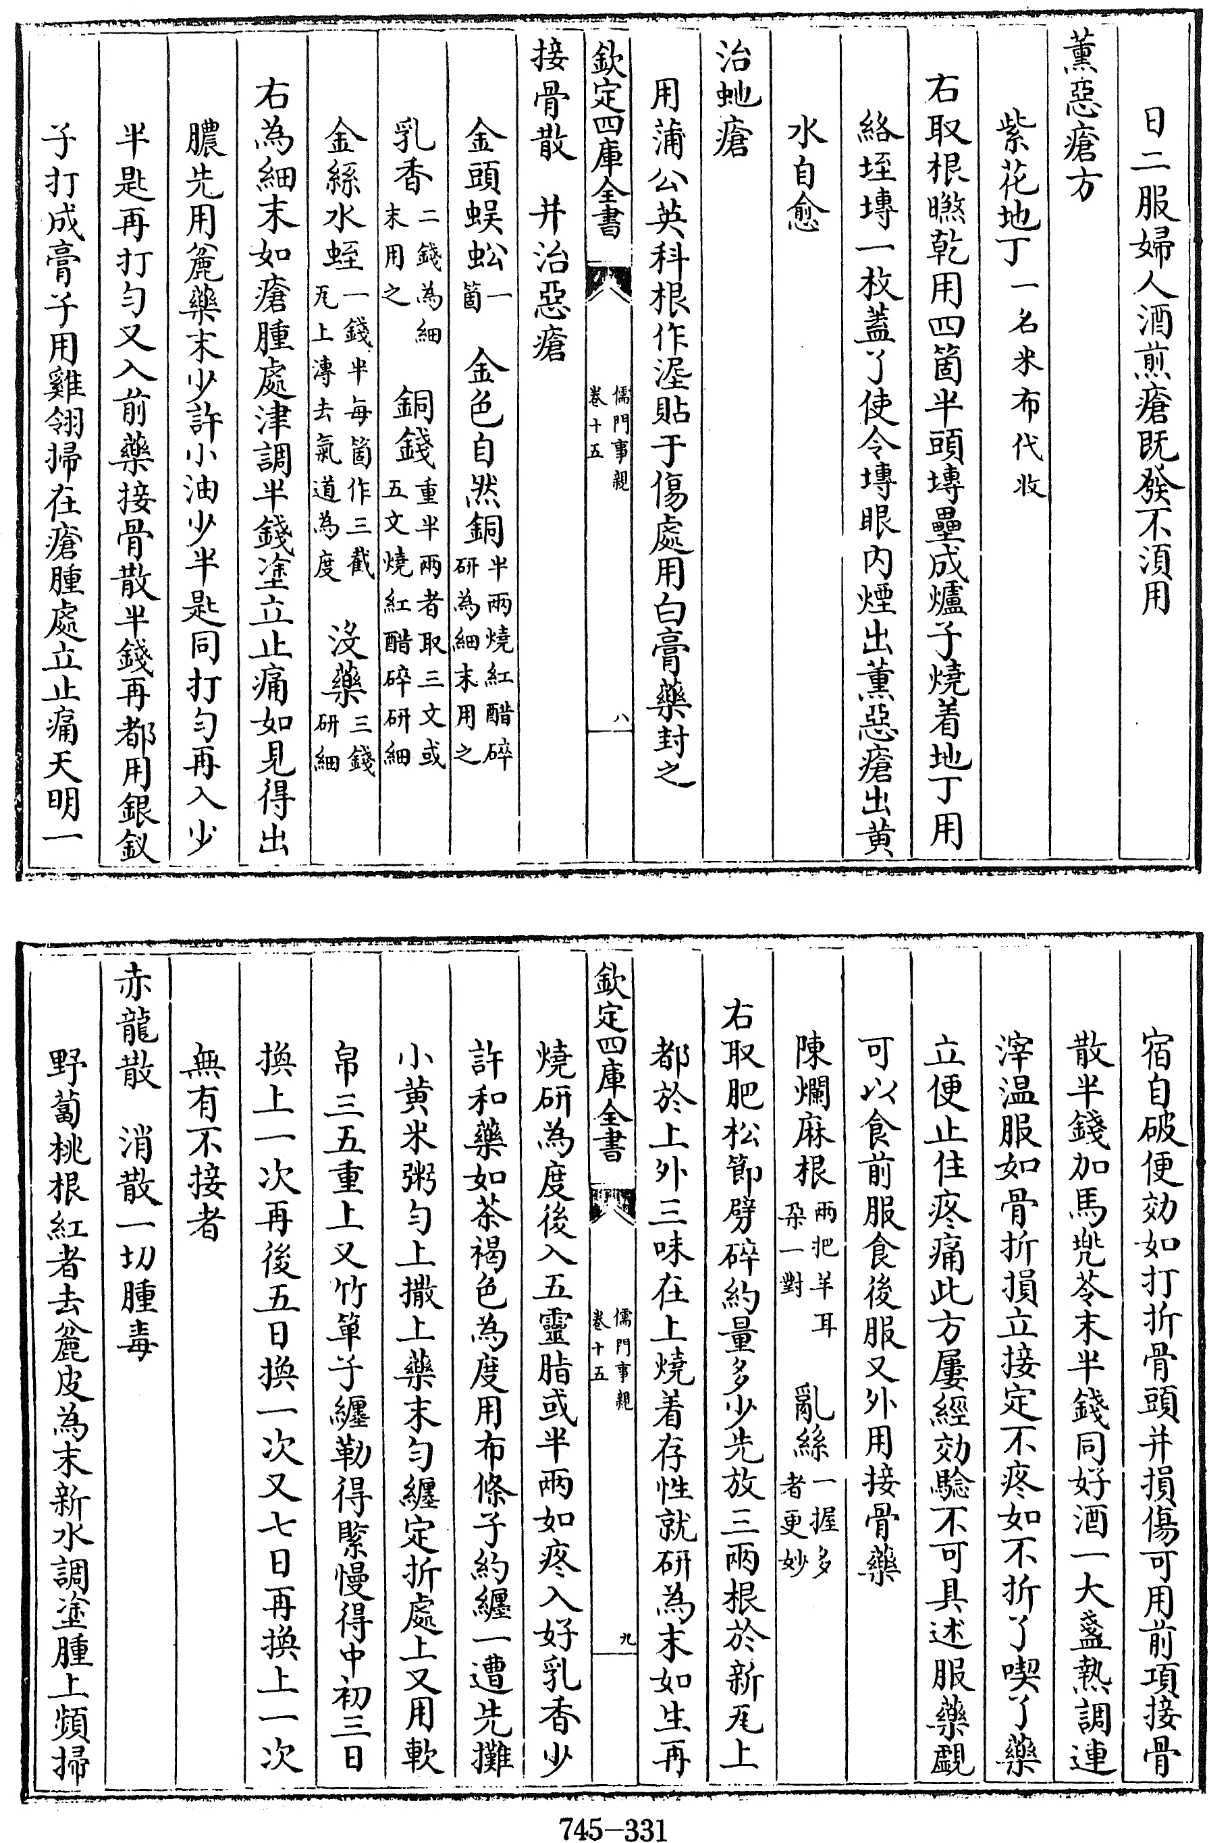 日二服婦人酒煎瘡既發不須用
薰惡瘡方
紫花地丁一名米布代收
右取根㬠乾用四箇半頭塼壘成爐子燒着地丁用
絡垤塼一枚蓋了使令塼眼内煙出薰惡瘡出黄
水自愈
治虵瘡
用蒲公英科根作埿貼于傷處用白膏藥封之
欽定四庫全書
儒門事親
卷十五
八
接骨散 并治惡瘡
金頭蜈蚣一箇 金色自然銅半兩燒紅醋碎研為細末用之
乳香二錢為細末用之 銅錢重半兩者取三文或五文燒紅醋碎研細
金絲水蛭一錢半每箇作三截瓦上溥去氣道為度 没藥三錢研細
右為細末如瘡腫處津調半錢塗立止痛如見得出
膿先用麄藥末少許小油少半匙同打勻再入少
半匙再打勻又入前藥接骨散半錢再都用銀釵
子打成膏子用雞翎掃在瘡腫處立止痛天明一
宿自破便効如打折骨頭并損傷可用前項接骨
散半錢加馬兠苓末半錢同好酒一大盞熱調連
滓温服如骨折損立接定不疼如不折了喫了藥
立便止住疼痛此方屢經効驗不可具述服藥覷
可以食前服食後服又外用接骨藥
陳爛麻根兩把羊耳朶一對 亂絲一握多者更妙
右取肥松節劈碎約量多少先放三兩根於新瓦上
都於上外三味在上燒着存性就研為末如生再
欽定四庫全書
儒門事親
卷十五
九
燒研為度後入五靈脂或半兩如疼入好乳香少
許和藥如茶褐色為度用布條子約纏一遭先攤
小黄米粥勻上撒上藥末勻纏定折處上又用軟
帛三五重上又竹箄子纏勒得緊慢得中初三日
換上一次再後五日換一次又七日再換上一次
無有不接者
赤龍散 消散一切腫毒
野萄桃根紅者去麄皮為末新水調塗腫上頻掃
745-331